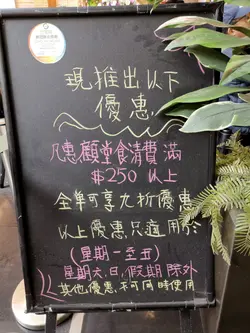 現推出以下
優惠
凡惠顧堂食消費滿
$250 以上
全單可享九折優惠
以上優惠只適用於
(星期一至五)
星期六、日、假期除外
其他優惠不可同時使用